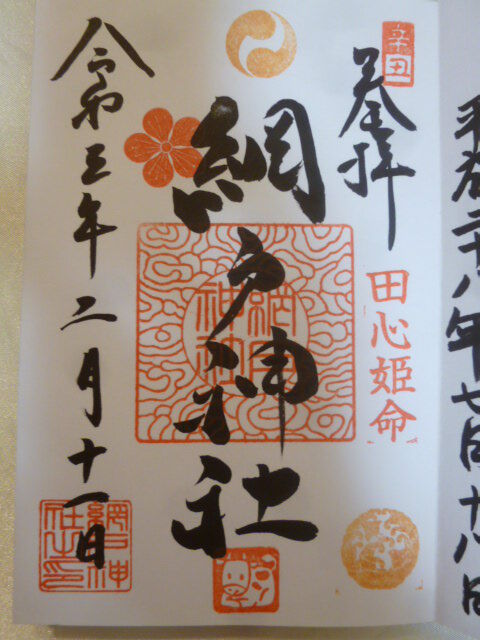 辛丑
奉拝
田心姫命
網戸神社
網戸神社
令和三年二月十一日
網戸神社之印
平成二十八年七月十八日